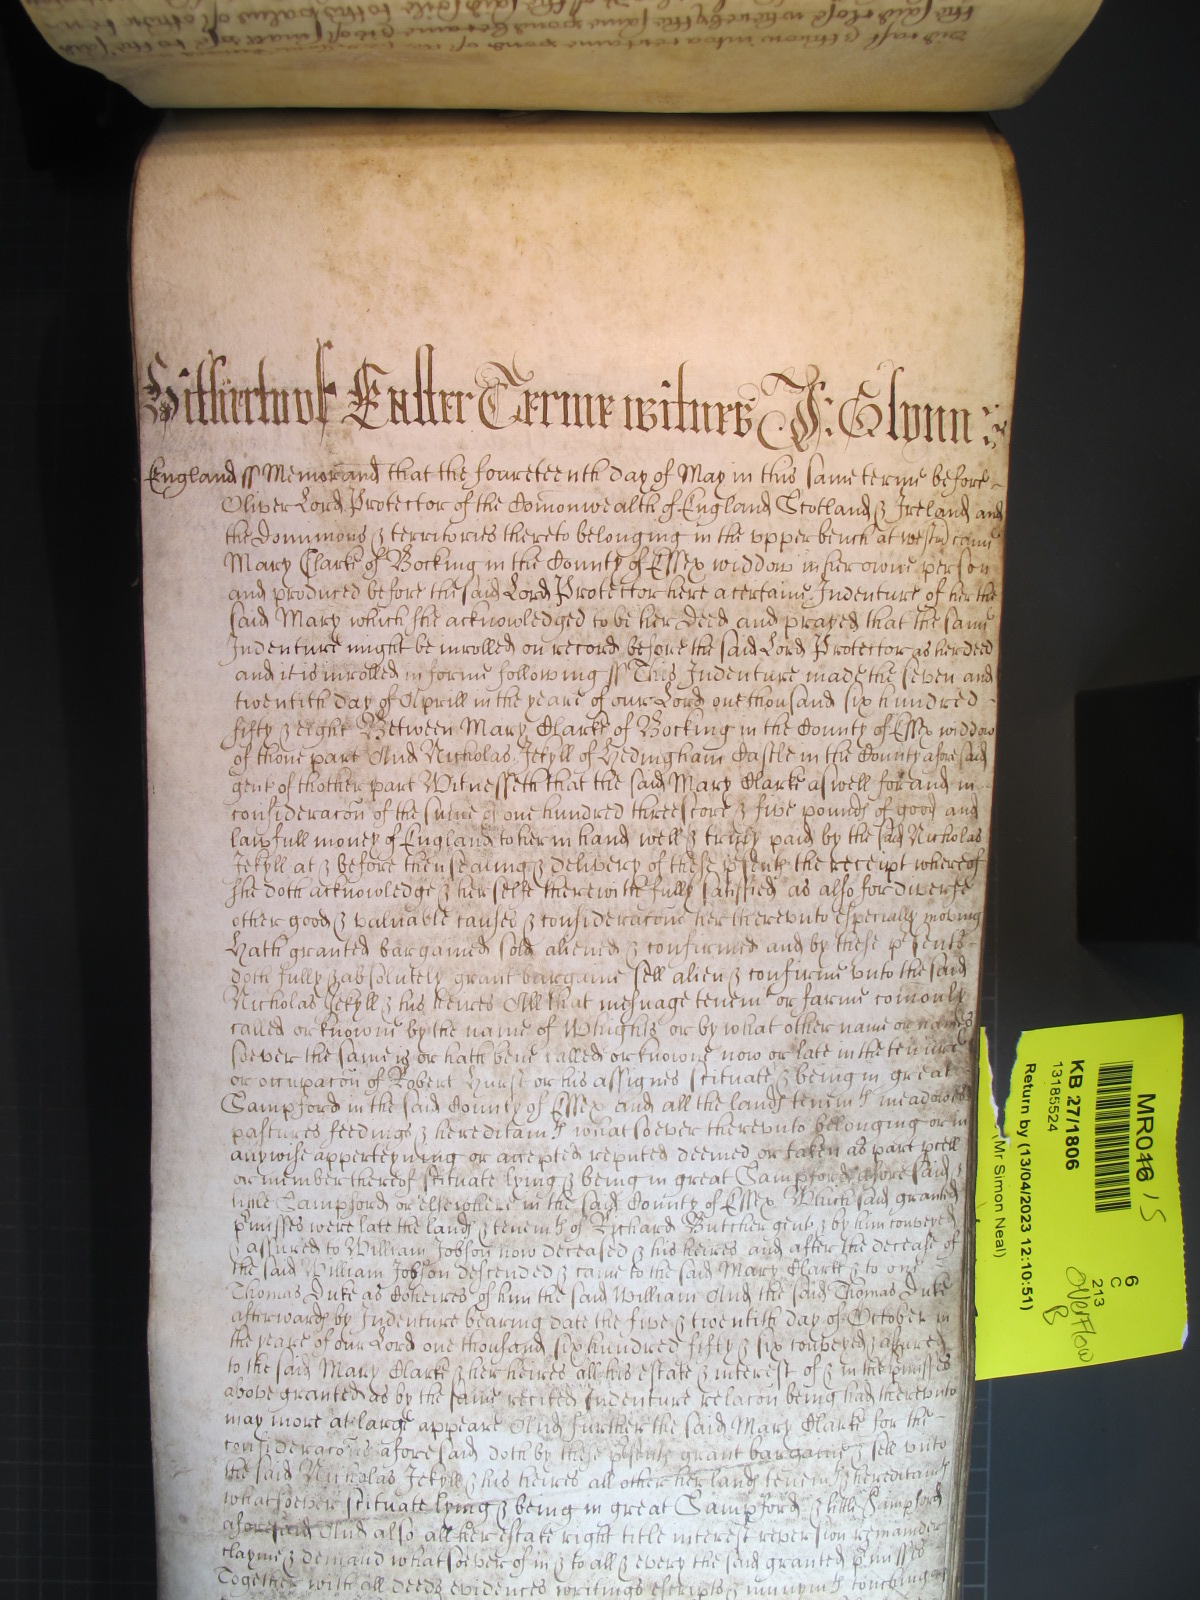 Hitherto of Easter Terme witnes J: Glynn
England ss Memorand that the foureteenth day of May in this same terme before
Oliver Lord Protector of the Comonwealth of England Scotland & Ireland and
the Dominions & territories thereto belonging in the upper bench at westm came
Mary Clarke of Bocking in the County of Essex widdow in her owne person
and produced before the said Lord Protector here a certaine Indenture of her the
said Mary which she acknowledged to be her Deed and prayed that the same
Indenture might be inrolled on record before the said Lord Protector as her deed
and it is inrolled in forme following ss This Indenture made the seven and
twentith day of Aprill in the yeare of our Lord one thousand six hundred
fifty & eight Between Mary Clarke of Bocking in the County of Essex widdow
of thone part And Nicholas Jekyll of Hedingham Castle in the County aforesaid
gent of thother part Witnesseth that the said Mary Clarke aswell for and in
consideracon of the sume of one hundred threescore & five pounds of good and
lawfull money of England to her in hand well & truly paid by the said Nicholas
Jekyll at & before thensealing & delivery of these psents the receipt whereof
she doth acknowledge & her selfe therewith fully satisfied as also for diverse
other good & valuable causes & consideracons her therevnto especially moving
Hath granted bargained sold aliened & confirmed and by these psents
doth fully & absolutely grant bargaine sell alien & confirme vnto the said
Nicholas Jekyll & his heires All that messuage tenemt or farme comonly
called or knowne by the name of Wrights or by what other name or names
soever the same is or hath bene called or knowne now or late in the tenure
or occupacon of Robert Hurse or his assignes scituate & being in great
Sampford in the said County of Essex and all the lands tenemts meadowes
pastures feedings & hereditamts whatsoever therevnto belonging or in
anywise apperteyning or accepted reputed deemed or taken as part pcell
or member thereof scituate lying & being in great Sampford aforesaid &
little Sampford or elsewhere in the said County of Essex Which said granted
pmisses were late the lands & tenemts of Richard Butcher gent & by him conveyed
& assured to William Jobson now deceased & his heires and after the decease of
the said William Jobson descended & came to the said Mary Clarke & to one
Thomas Duke as Coheires of him the said William And the said Thomas Duke
afterwards by Indenture bearing date the five & twentith day of October in
the yeare of our Lord one thousand six hundred fifty & six conveyed & assured
to the said Mary Clarke & her heires all his estate & interest of & in the pmisses
above granted as by the same recited Indenture relacon being had therevnto
may more at large appeare And further the said Mary Clarke for the
consideracons aforesaid doth by these psents grant bargaine & sell vnto
the said Nicholas Jekyll & his heires all other her lands tenemts & hereditamts
whatsoever scituate lying & being in great Sampford & little Sampford
aforesaid And also all her estate right title interest reversion remainder
clayme & demand whatsoever of in & to all & every the said granted pmisses
Together with all deeds evidences writings escripts & munymts touching
MR016 / S
KB 27/1806
13185524
Return by (13/04/2023 12:10:51)
(Mr Simon Neal)
6
C
213
Overflow
B